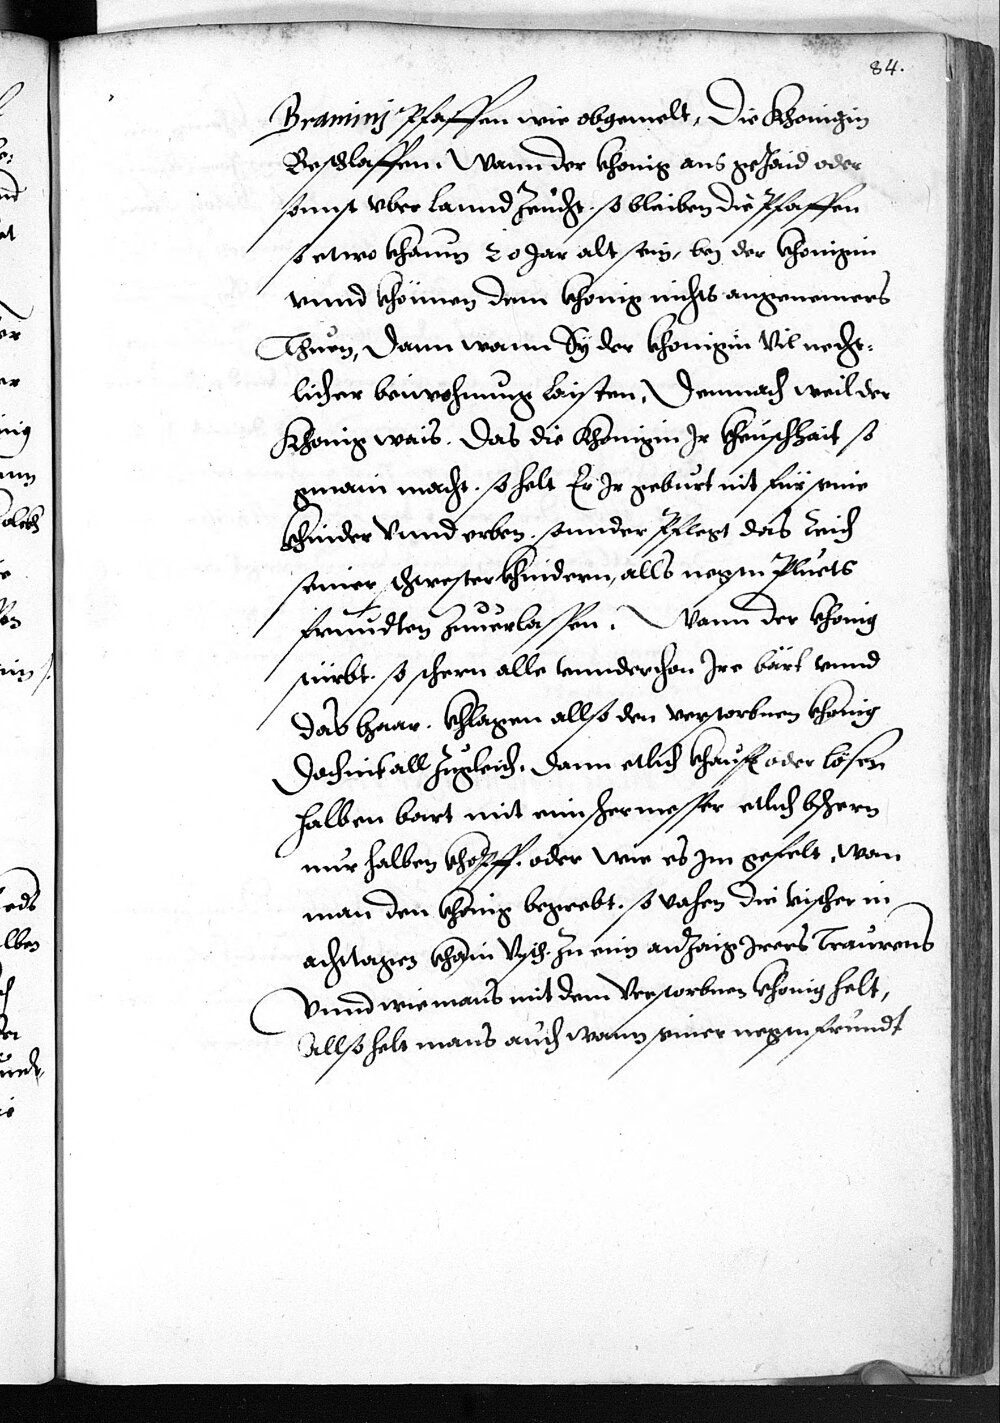 84.
Bramini Pfaffen wie obgemelt, Die Khonigin
Beschlaffen. Wann der khonig ans gejaid oder
sonnst vber lannd zeücht. so bleiben die Pfaffen
so etwo khaum 20 Jar alt sein, bey der khonigin
vnnd khönnen dem khonig nichts angenemers
Thuen, Dann wann Sy der khonigin vil necht-
licher beiwohnung laisten, Demnach weil der
Khonig wais. Das die Khonigin Ir kheüschhait so
gmain macht. so helt Er Ir geburt nit für seine
khinder vnnd erben. sonnder Pflegt das reich
seiner schwester khindern, alls negsten Pluets
freundten zuuerlassen. Wann der khonig
stirbt. so schern alle vnnderthon Ire bärt vnnd
das haar. khlagen allso den verstorbnen khonig
Doch nit all zugleich. dann etlich oder lösen
halben bart mit eim schermesser etlich bschern
nur halben khopff. oder wie es Im gefelt, wan
man den khonig begrebt. so vahen die vischer in
acht tagen khain visch. zu eim anzaig Irers Traurens
Vnnd wie mans mit dem verstorbnen khonig helt,
Allso helt mans auch wann einer negsten freundt